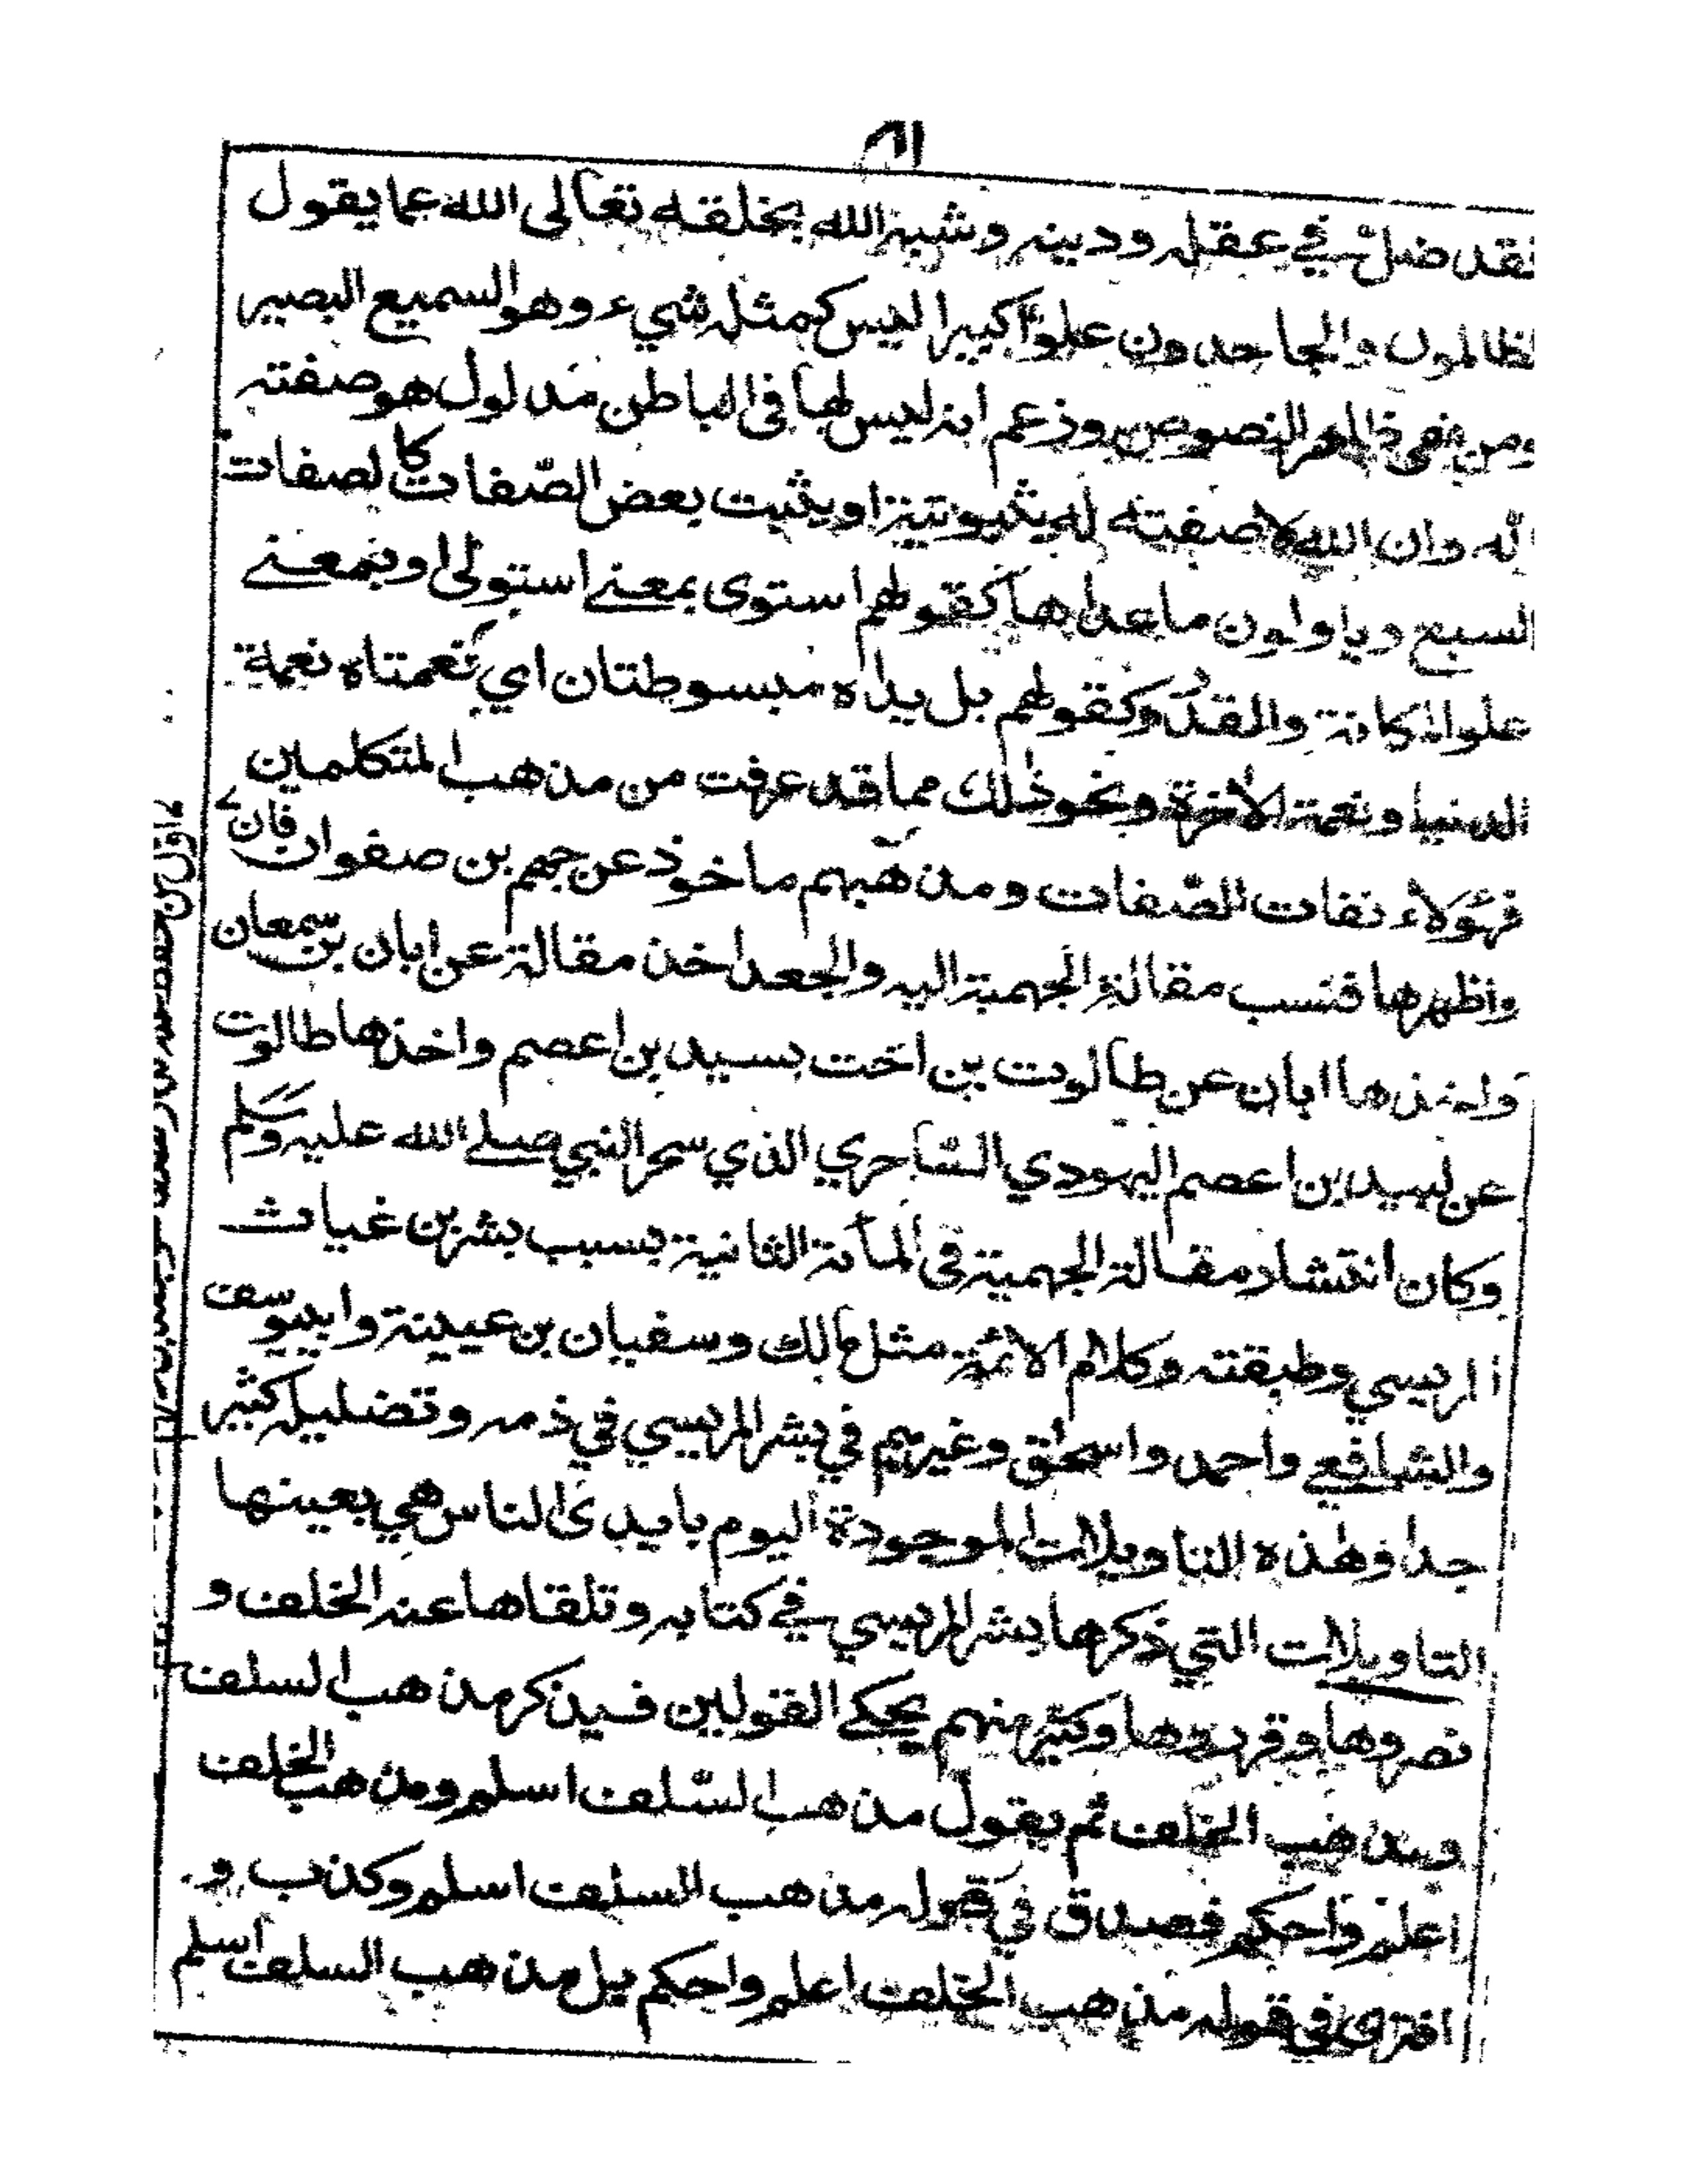 فقد ضل في عقله ودينه وشبه الله بخلقه تعالى الله عما يقول
الظالمون والجاحدون علوا كبيرا ليس كمثله شيء وهو السميع البصير
ومن نفى ظاهر النصوص وزعم انه ليس لها فى الباطن مدلول هو صفته
الله وان الله لا صفته له ثبوتية او يثبت بعض الصّفات كالصفات
السبع وياولون ما عداها كقولهم استوى بمعنے استولى او بمعنے
علو المكانة والقدر وكقولهم بل يداه مبسوطتان اي نعمتاه نعمة
الدنيا ونعمة الأخرة ونحو ذلك مما قد عرفت من مذهب المتكلمين
فهؤلاء نفات الصّفات ومذهبهم ماخوذ عن جهم بن صفوان فان
واظهرها فنسب مقالة الجهمية اليه والجعد اخذ مقالة عن ابان بن سمعان
واخذها ابان عن طالوت بن اخت بسيد بن اعصم واخذها طالوت
عن لبيد بن اعصم اليهودي السّاحري الذي سحر النبي صلے الله عليه وسلم
وكان انتشار مقالة الجهمية فى المأئة الثانية بسبب بشر بن غياث
المريسي وطبقته وكلام الائمّة مثل مالك وسفيان بن عيينة وابييوسف
والشافعے واحمد واسحٰق وغيرهم في بشر المريسي في ذمه وتضليله كثير
جدا وهٰذه التاويلات الموجودة اليوم بايدى الناس هي بعينها
التاويلات التي ذكرها بشر المريسي في كتابه وتلقاها عنه الخلف و
نصروها وقرروها وكثير منهم يحكے القولين فيذكر مذهب السلف
ومذهب الخلف ثم يقول مذهب السّلف اسلم ومذهب الخلف
اعلم واحكم فصدق في قوله مذهب السلف اسلم وكذب و
افترى في قوله مذهب الخلف اعلم واحكم بل مذهب السلف اسلم